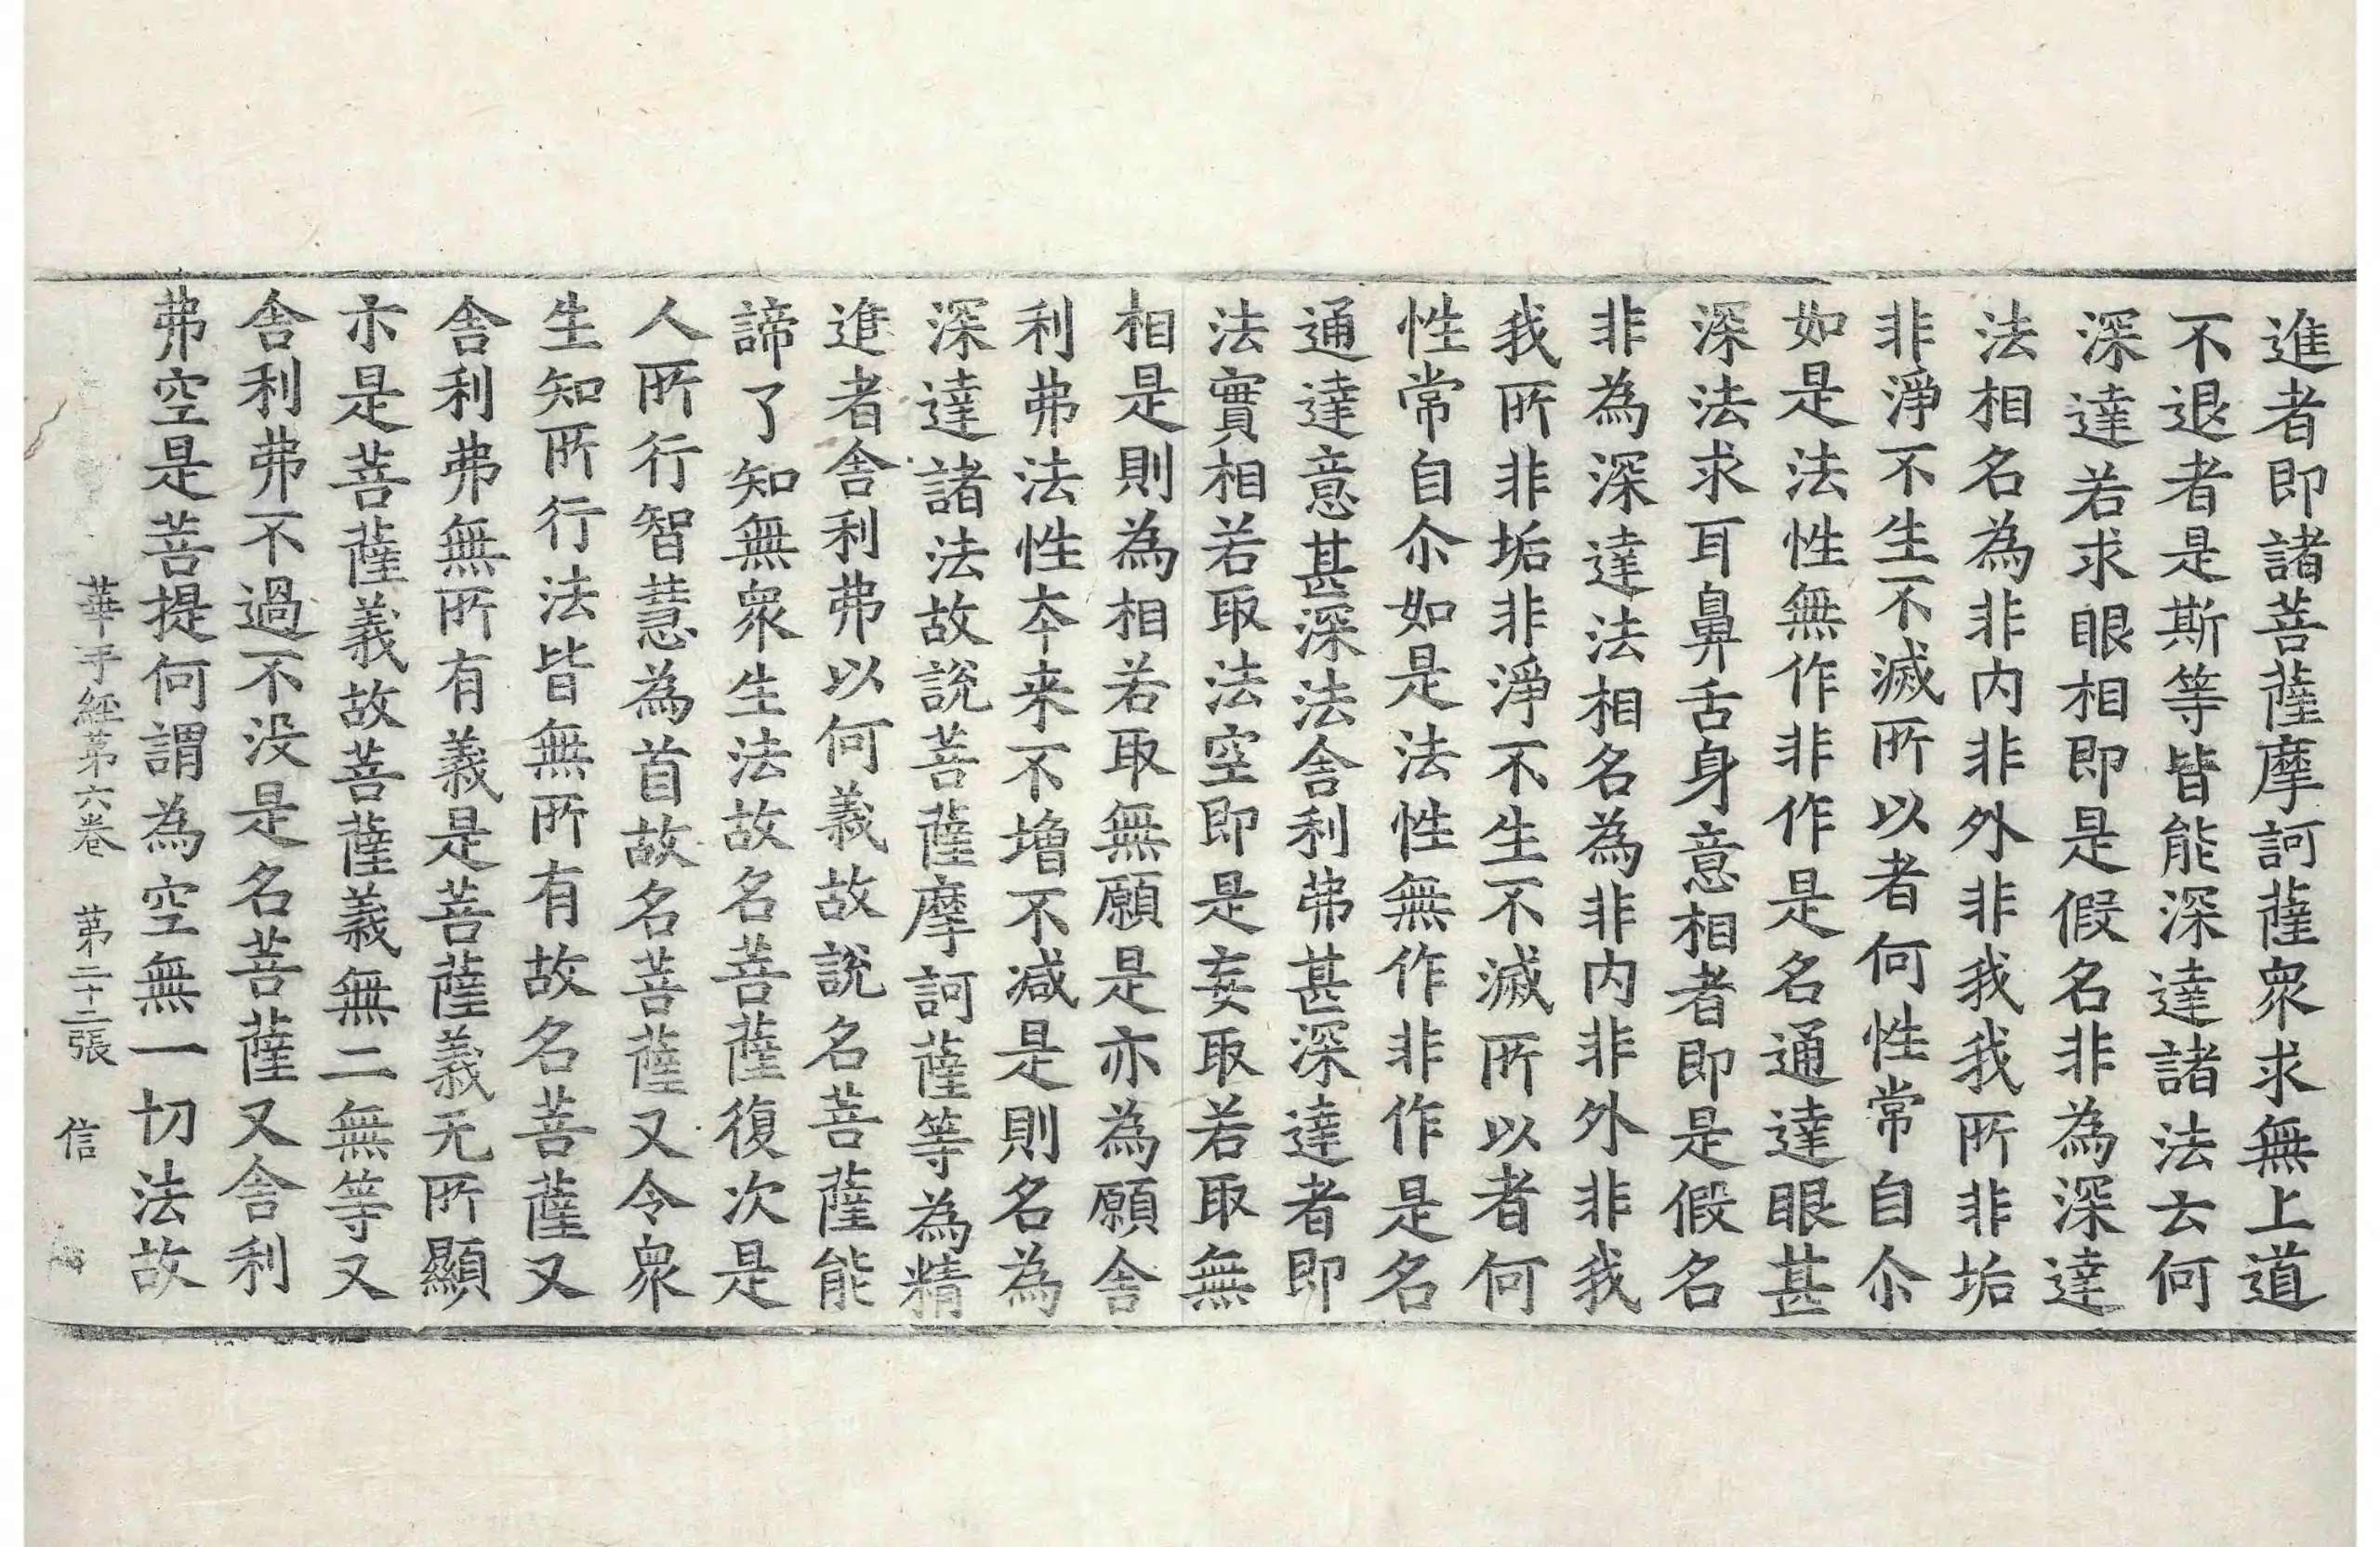 進者即諸菩薩摩訶薩衆求無上道
不退者是斯等皆能深達諸法云何
深達若求眼相即是假名非為深達
法相名為非内非外非我我所非垢
非淨不生不滅所以者何性常自尒
如是法性無作非作是名通達眼甚
深法求耳鼻舌身意相者即是假名
非為深達法相名為非内非外非我
我所非垢非淨不生不滅所以者何
性常自尒如是法性無作非作是名
通達意甚深法舎利弗甚深達者即
法實相若取法空即是妄取若取無
相是則為相若取無願是亦為願舎
利弗法性夲来不增不減是則名為
深達諸法故說菩薩摩訶薩等為精
進者舎利弗以何義故說名菩薩能
諦了知無衆生法故名菩薩復次是
人所行智慧為首故名菩薩又令衆
生知所行法皆無所有故名菩薩又
舎利弗無所有義是菩薩義无所顯
亦是菩薩義故菩薩義無二無等又
舎利弗不過不没是名菩薩又舎利
弗空是菩提何謂為空無一切法故
華手經苐六卷　苐二十二張　信